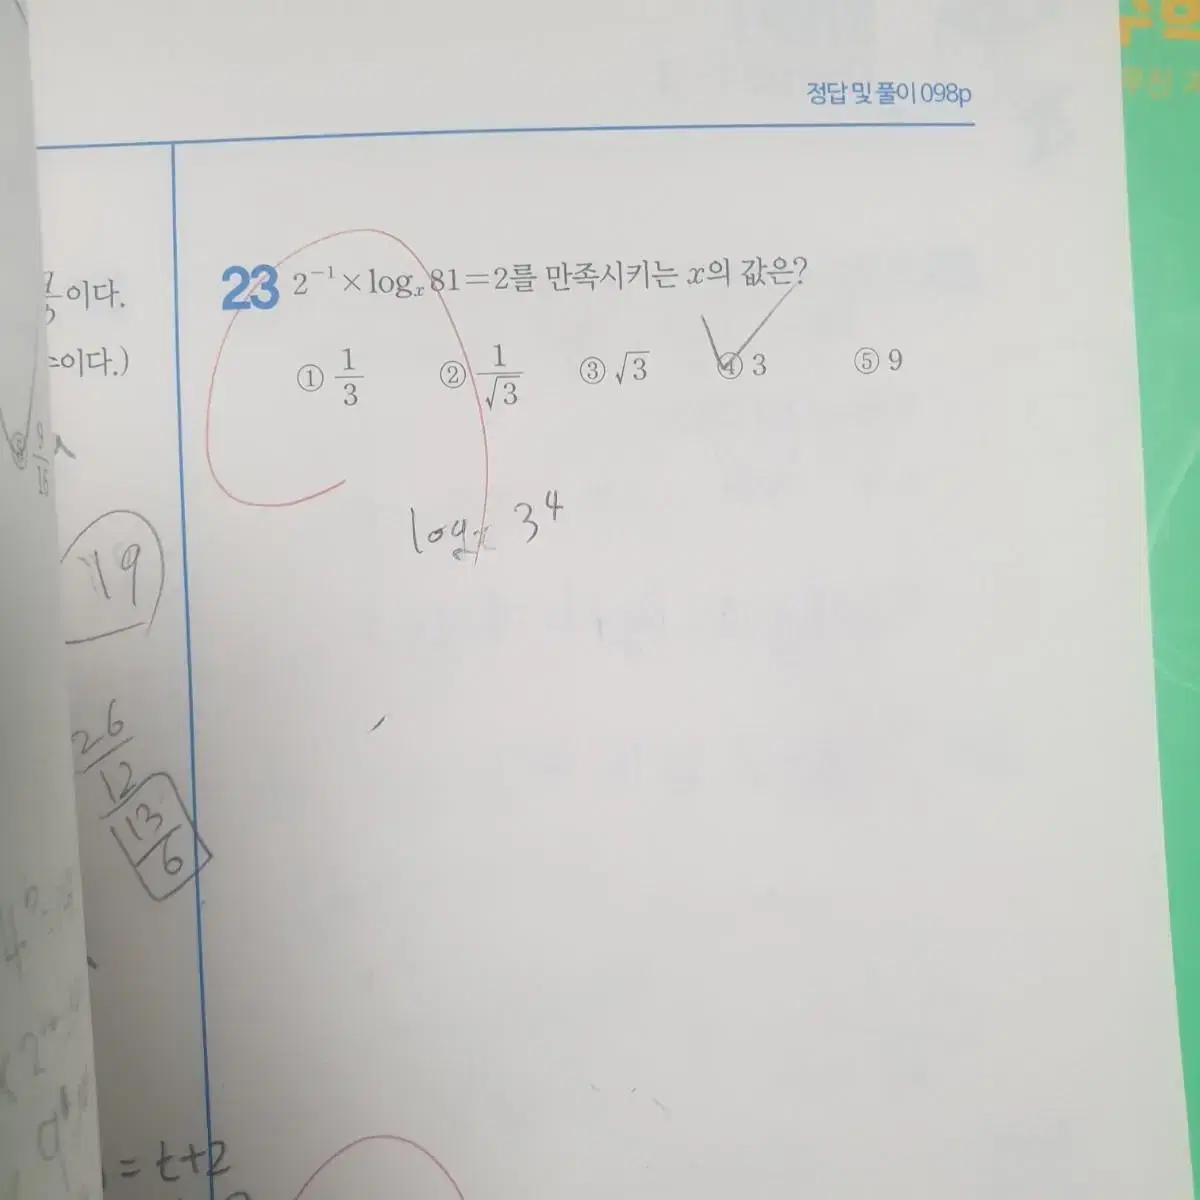 정답 및 풀이 098p
이다.
이다.)
19
26/12
13/6
= t+2
23 2⁻¹×logₓ81=2를 만족시키는 x의 값은?
① 1/3 ② 1/√3 ③ √3 ④ 3 ⑤ 9
logₓ 3⁴